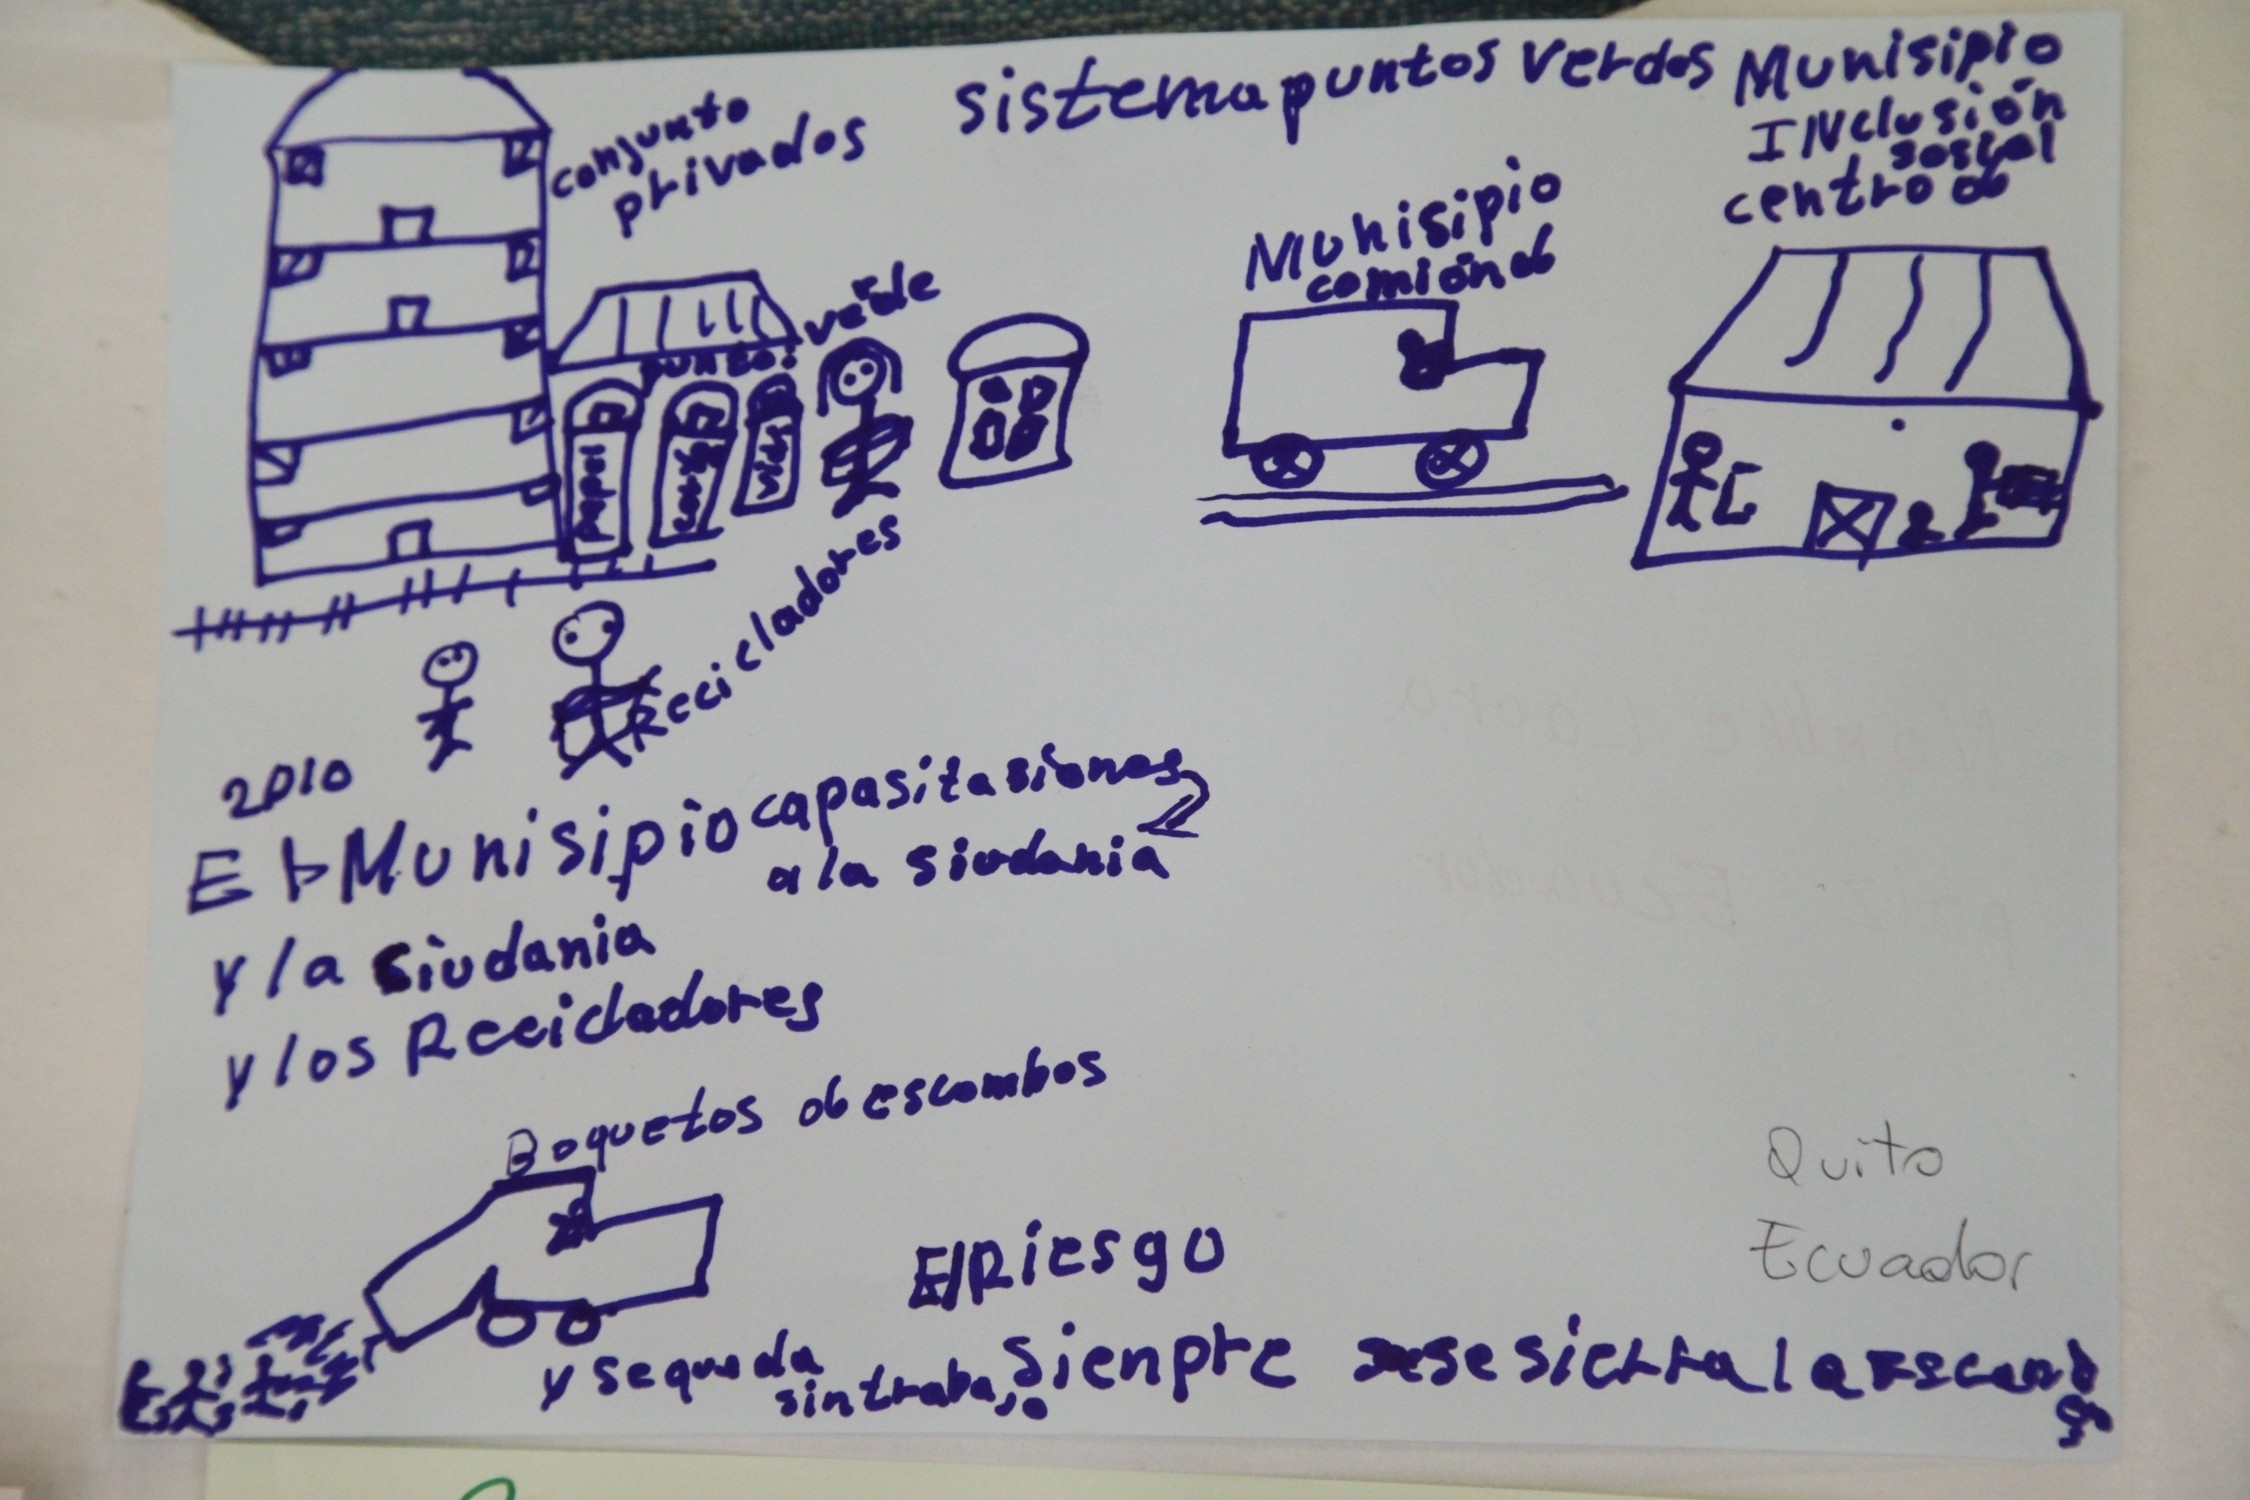 sistema puntos verdos
Munisipio
INclusión
sosyal
centro de
conjunto
privados
Munisipio
comión de
punto verde
papel
vidr
Recicladores
2010
El Munisipio capasitasiones
a la siudania
y la siudania
y los Recicladores
Boquetos de escombos
El Riesgo
y se queda
sin trabajo
sienpre se sierra la
Quito
Ecuador